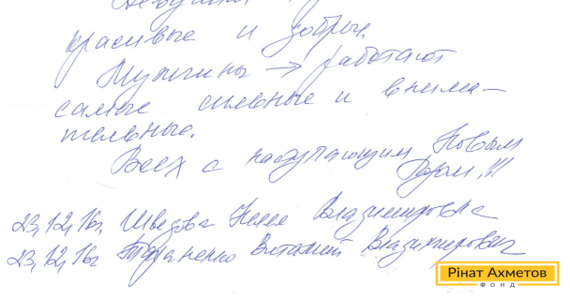 красивые и добрые.
Мужчины → работают
самые сильные и внима-
тельные.
Всех с наступающим Новым
Годом!!!
23,12,16г. Шведова Владимировна
23,12,16г Виталий Владимирович
Рінат Ахметов
ФОНД